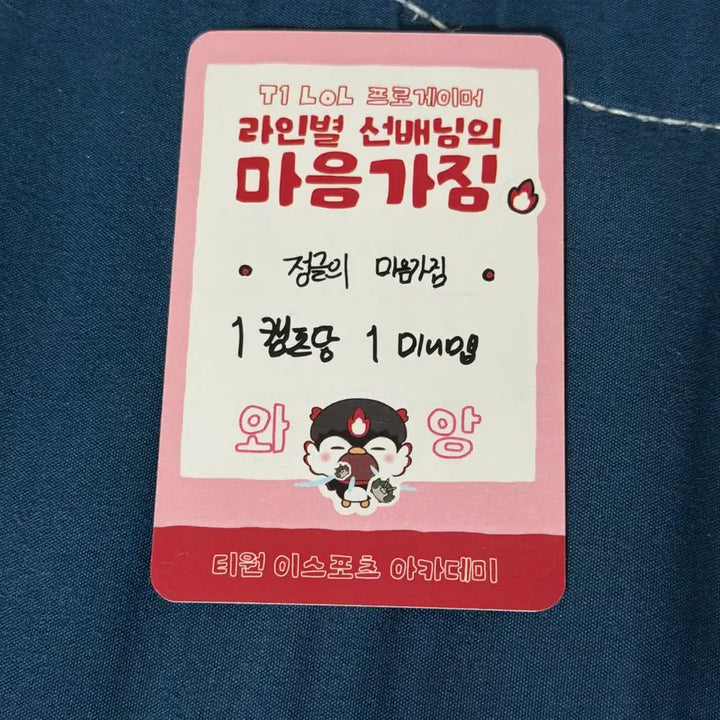 T1 LoL 프로게이머
라인별 선배님의
마음가짐
• 정글의 마음가짐 •
1 캠프당 1 미니맵
와 앙
티원 이스포츠 아카데미